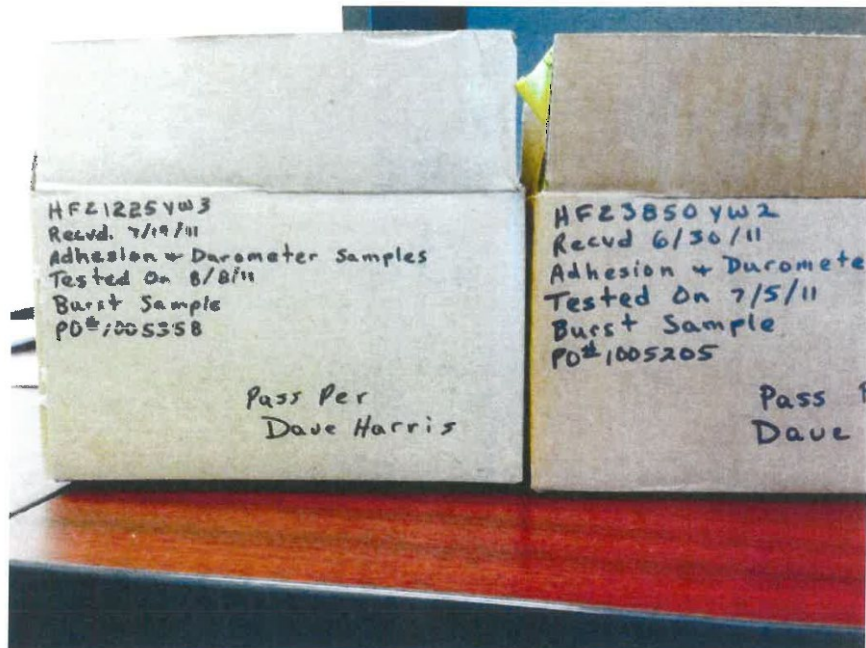 HFZ1225YW3
Recvd. 7/19/11
Adhesion & Durometer Samples
Tested On 8/8/11
Burst Sample
PO# 1005358
Pass Per
Dave Harris
HFZ3850YW2
Recvd 6/30/11
Adhesion & Duromete
Tested On 7/5/11
Burst Sample
PO# 1005205
Pass P
Dave